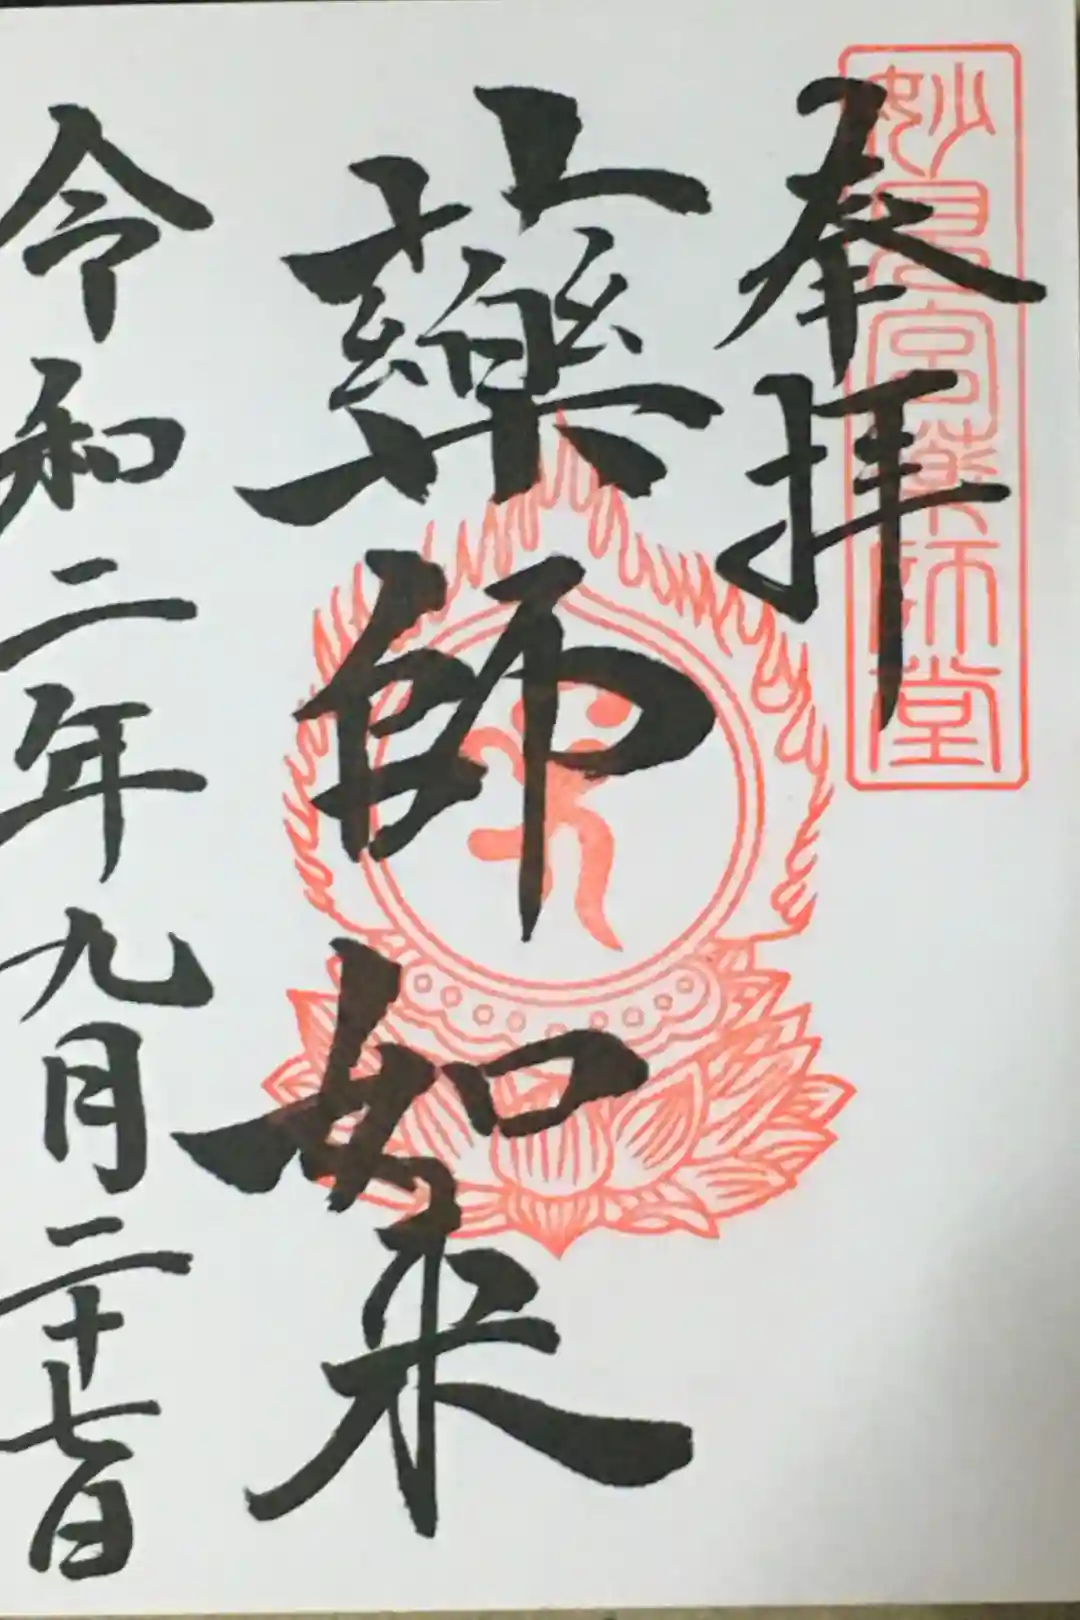 妙見宮薬師堂
奉拝
薬師如来
令和二年九月二十七日